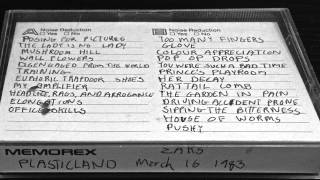 A Noise Reduction
Yes No
POSING FOR PICTURES
THE LADY IS NO LADY
MUSHROOM HILL
WALL FLOWERS
DISENGAGED FROM THE WORLD
TRAINING
EUPHORIC TRAPDOOR SHOES
MY AMPLIFIER
HEADLICE, RAGS, AND ARROGANCE
ELONGATIONS
OFFICE SKILLS
B Noise Reduction
Yes No
TOO MANY FINGERS
GLOVE
COLOUR APPRECIATION
POP OP DROPS
YOU WERE SUCH A BAD TIME
PRINCE'S PLAYROOM
HER DECAY
RATTAIL COMB
THE GARDEN IN PAIN
DRIVING ACCIDENT PRONE
SIPPING THE BITTERNESS
HOUSE OF WORMS
PUSHY
MEMOREX
ZAKS
PLASTICLAND March 16 1983